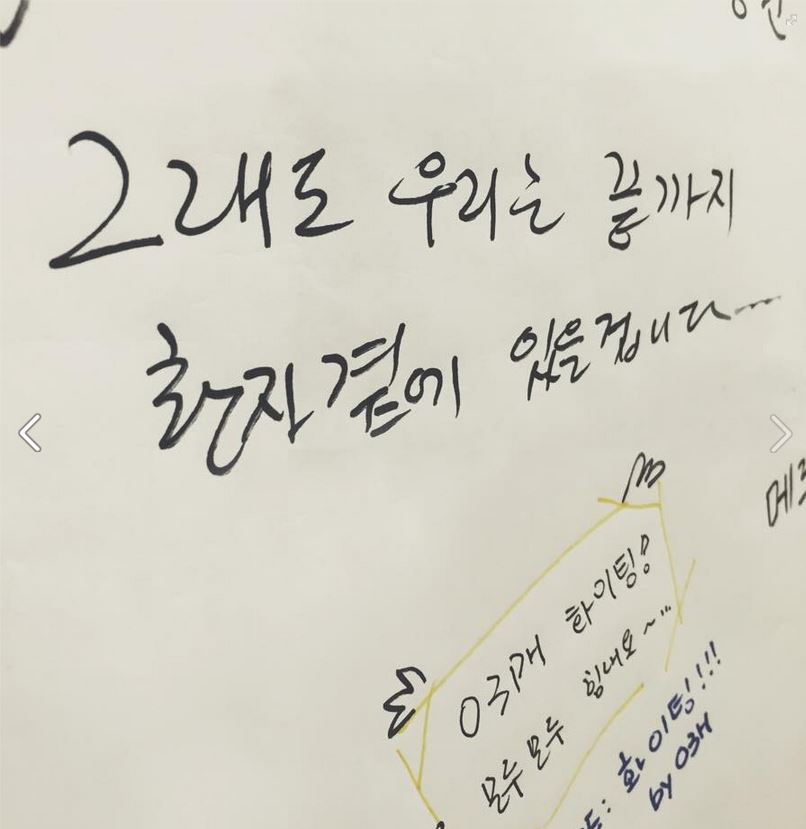 그래도 우리는 끝까지
환자곁에 있을겁니다...
화이팅!
모두모두 힘내요~...
화이팅!!!
by 03H